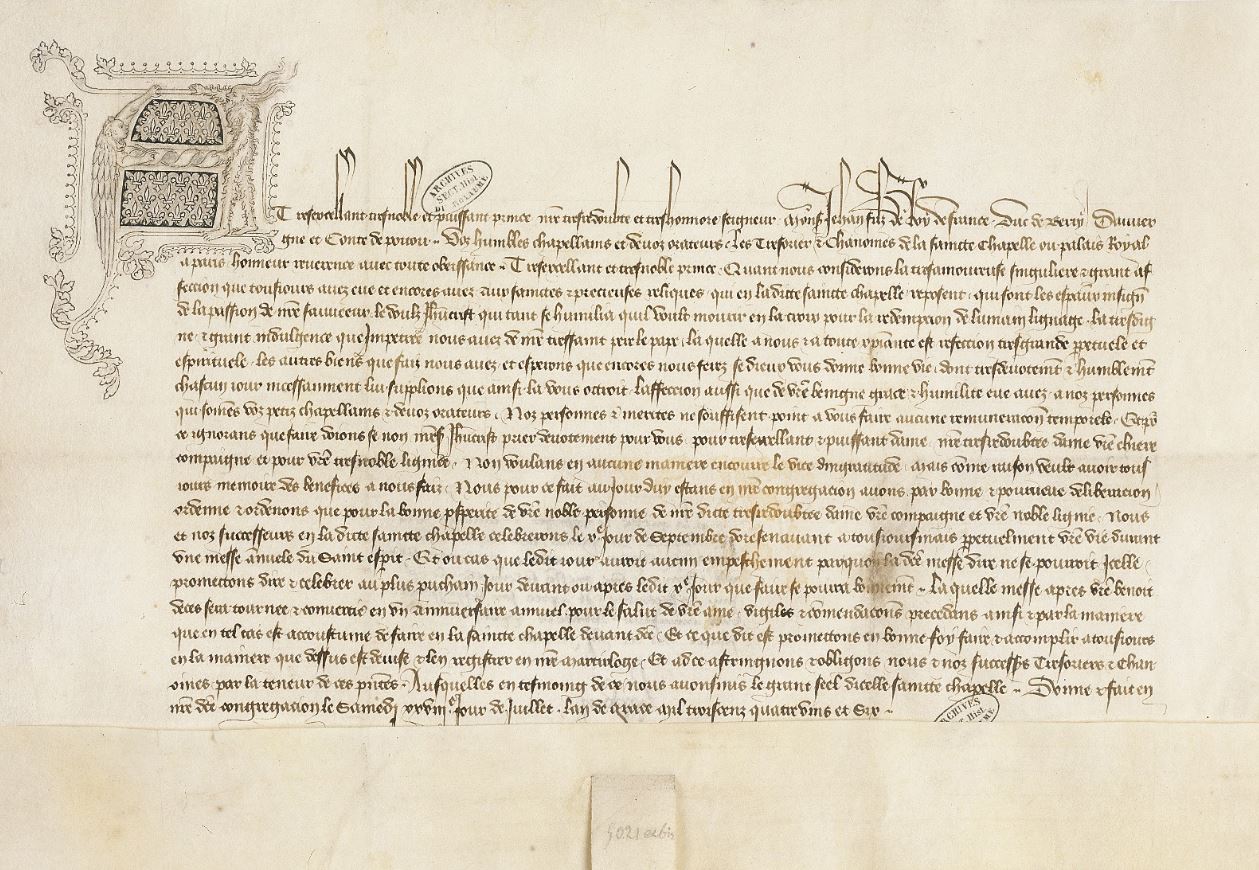 A Tresexcellant tresnoble et puissant prince nr̃e tresredoubte et treshonnore seigneur Mons. Jehan filz de Roy de france Duc de Berry Dauuer
gne et Conte de poitou Voz humbles chapellains et deuoz orateurs les Tresorier & Chanoines de la saincte Chapelle ou palais Royal
a paris honneur reuerence auec toute obeissance Tresexcellant et tresnoble prince Quant nous considerons la tresamoureuse singuliere & grant af
feccion que tousiours auez eue et encores auez aux sainctes & precieuses reliques qui en la dicte saincte chapelle reposent qui sont les
de la passion de nr̃e sauueeur le doulz Jhũcrist qui tant se humilia quil voult mourir en la croix pour la redempcion de lumain lignage la tresdig
ne & grant indulgence que Impetree nous auez de nr̃e tressaint pere le pape la quelle a nous & a toute est refeccion tresgrande ppetuele et
espirituele les autres biens que faiz nous auez et esperons que encores nous ferez se dieux vous donne bonne vie dont tresdeuotemẽt & humblemẽt
chascun iour incessanment lui supplions que ainsi la vous octroit laffeccion aussi que de vr̃e benigne grace & humilite eue auez a noz personnes
qui somẽs voz petiz chapellains & deuoz orateurs Noz personnes & merites ne souffisent point a vous faire aucune remuneracon temporele
ce ignorans que faire doions se non nr̃e s. Jhũcrist prier deuotement pour vous pour tresexcellant & puissant dame nr̃e tresredoubtee dame vr̃e chiere
compaigne et pour vr̃e tresnoble lignee Non voulans en aucune maniere encourre le vice dingratitude mais cõme raison veult auoir tous
iours memoire des benefices a nous faiz Nous pour ce fait au Jour duy estans en nr̃e congregacion auons par bonne & pourueue deliberacion
ordenne & ordenons que pour la bonne psperite de vr̃e noble personne de nr̃e dicte tresredoubtee dame vr̃e compaigne et vr̃e noble lignie Nous
et noz successeurs en la dicte saincte chapelle celebrerons le vᵉ Jour de Septembre doresenauant a tousioursmais ppetuelment vr̃e vie durant
vne messe ãnuele du Saint esperit Et ou cas que le dit iour auroit aucun empeschement parquoy la dc̃e messe dire ne se pourroit Icelle
promettons dire & celebrer au plus puchain Jour deuant ou apres le dit vᵉ Jour que faire se pourra bonement La quelle messe apres vr̃e benoit
deces sera tournee & conuertie en vn Anniuersaire annuel pour le salut de vr̃e ame vigiles & cõmendacons precedans ainsi & par la maniere
que en tel cas est acoustume de faire en la saincte chapelle deuant dc̃e Et ce que dit est promettons en bonne foy faire & accomplir a tousiours
en la maniere que dessus est deuise & len registrer en nr̃e martirloge Et ad ce astringnons & obligons nous & noz successrs Tresoriers & Chan
oines par la teneur de ces pñtes Ausquelles en tesmoing de ce nous auons mis le grant seel dicelle saincte chapelle Donne & fait en
nr̃e dc̃e congregacion le Samedi xxviiiᵉ Jour de Juillet lan de grace Mil troiscenz quatre vins et Six
ARCHIVES
SECT. HIST.
DU ROYAUME
ARCHIVES
SECT. HIST.